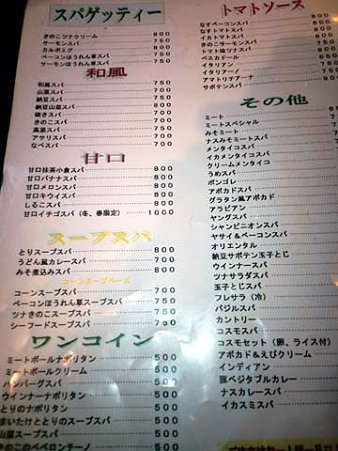 スパゲッティー
きのこツナクリーム 800
サーモンスパ 800
カルボエグ 800
ベーコンほうれん草スパ 750
サーモンほうれん草スパ 750
和風
和風スパ 750
山菜スパ 750
納豆スパ
納豆山菜スパ 800
焼きスパ
きのこスパ 750
高菜スパ 750
アサリスパ 750
なべスパ
甘口
甘口抹茶小倉スパ 800
甘口バナナスパ 800
甘口メロンスパ 800
甘口キウイスパ 800
しるこスパ 800
甘口イチゴスパ(冬、春限定) 1000
スープスパ
とりスープスパ 800
うどん風カレースパ 700
みそ煮込みスパ 800
コーンスープスパ 750
ベーコンほうれん草スープスパ 750
ツナきのこスープスパ 750
シーフードスープスパ 750
ワンコイン
ミートボールナポリタン 500
ミートボールクリーム 500
ハンバーグスパ 500
ウインナーナポリタン 500
とりのナポリタン 500
まいたけととりのスープスパ 500
山菜スープスパ 500
きのこのペペロンチーノ 500
トマトソース
なすベーコンスパ
なすトマトスパ
きのこトマトスパ
きのこサーモンスパ
トマト味ツナスパ
ペスカドール
イタリアン
イタリアーノ
アマトリチアーナ
サボテンスパ
その他
ミート
ミートスペシャル
みそミート
ナスみそミートスパ
メンタイコスパ
イカメンタイコスパ
クリームメンタイコ
うめスパ
ボンゴレ
アボカドスパ
グラタン風アボカド
アラビアン
ヤングスパ
シャンピニオンスパ
ヤサイ&ベーコンスパ
オリエンタル
納豆サボテン玉子とじ
ウインナースパ
ツナサラダスパ
玉子とじスパ
フレサラ(冷)
バジルスパ
カントリー
コスモスパ
コスモセット(豚、ライス付)
アボカド&えびクリーム
インディアン
豚ベジタブルカレー
ナスカレースパ
イカスミスパ